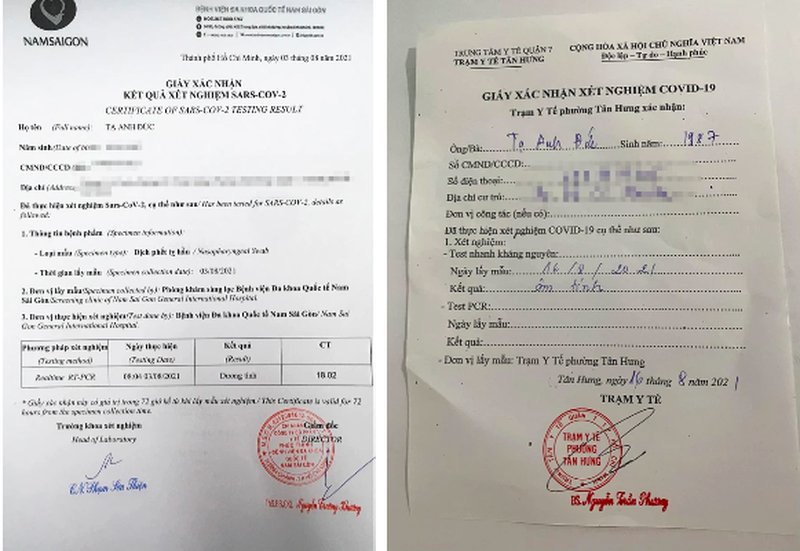 NAMSAIGON
BỆNH VIỆN ĐA KHOA QUỐC TẾ NAM SÀI GÒN
Thành phố Hồ Chí Minh, ngày 03 tháng 08 năm 2021
GIẤY XÁC NHẬN
KẾT QUẢ XÉT NGHIỆM SARS-COV-2
CERTIFICATE OF SARS-COV-2 TESTING RESULT
Họ tên (Full name): TẠ ANH ĐỨC
Năm sinh/(Date of birth)
CMND/CCCD
Địa chỉ (Address)
Đã thực hiện xét nghiệm Sars-CoV-2, cụ thể như sau/ Has been tested for SARS-COV-2, details as
followed:
1. Thông tin bệnh phẩm (Specimen information):
- Loại mẫu (Specimen type): Dịch phết tỵ hầu / Nasopharyngeal Swab
- Thời gian lấy mẫu (Specimen collection date): 03/08/2021
2. Đơn vị lấy mẫu/Specimen collected by: Phòng khám sàng lọc Bệnh viện Đa khoa Quốc tế Nam
Sài Gòn/Screening clinic of Nam Sai Gon General International Hospital.
3. Đơn vị thực hiện xét nghiệm/Test done by: Bệnh viện Đa khoa Quốc tế Nam Sài Gòn/ Nam Sai
Gon General International Hospital.
Phương pháp xét nghiệm Ngày thực hiện Kết quả CT
(Testing method) (Testing Date) (Result)
Realtime RT-PCR 08:04 03/08/2021 Dương tính 18.02
* Giấy xác nhận này có giá trị trong 72 giờ kể từ khi lấy mẫu xét nghiệm/ This Certificate is valid for 72
hours from the specimen collection time.
Trưởng khoa xét nghiệm Giám đốc
Head of Laboratory DIRECTOR
BỆNH VIỆN ĐA KHOA
QUỐC TẾ
NAM SÀI GÒN
TRUNG TÂM Y TẾ QUẬN 7 CỘNG HÒA XÃ HỘI CHỦ NGHĨA VIỆT NAM
TRẠM Y TẾ TÂN HƯNG Độc lập - Tự do - Hạnh phúc
GIẤY XÁC NHẬN XÉT NGHIỆM COVID-19
Trạm Y Tế phường Tân Hưng xác nhận:
Ông/Bà: Tạ Anh Đức Sinh năm: 1987
Số CMND/CCCD:
Số điện thoại:
Địa chỉ cư trú:
Đơn vị công tác (nếu có):
Đã thực hiện xét nghiệm COVID-19 cụ thể như sau:
1. Xét nghiệm:
- Test nhanh kháng nguyên:
Ngày lấy mẫu: 16/8/2021
Kết quả: âm tính
- Test PCR:
Ngày lấy mẫu:
Kết quả:
- Đơn vị lấy mẫu: Trạm Y Tế phường Tân Hưng
Tân Hưng, ngày 16 tháng 8 năm 2021
TRẠM Y TẾ
TRẠM Y TẾ
PHƯỜNG
TÂN HƯNG
BS. Nguyễn Trần Phương